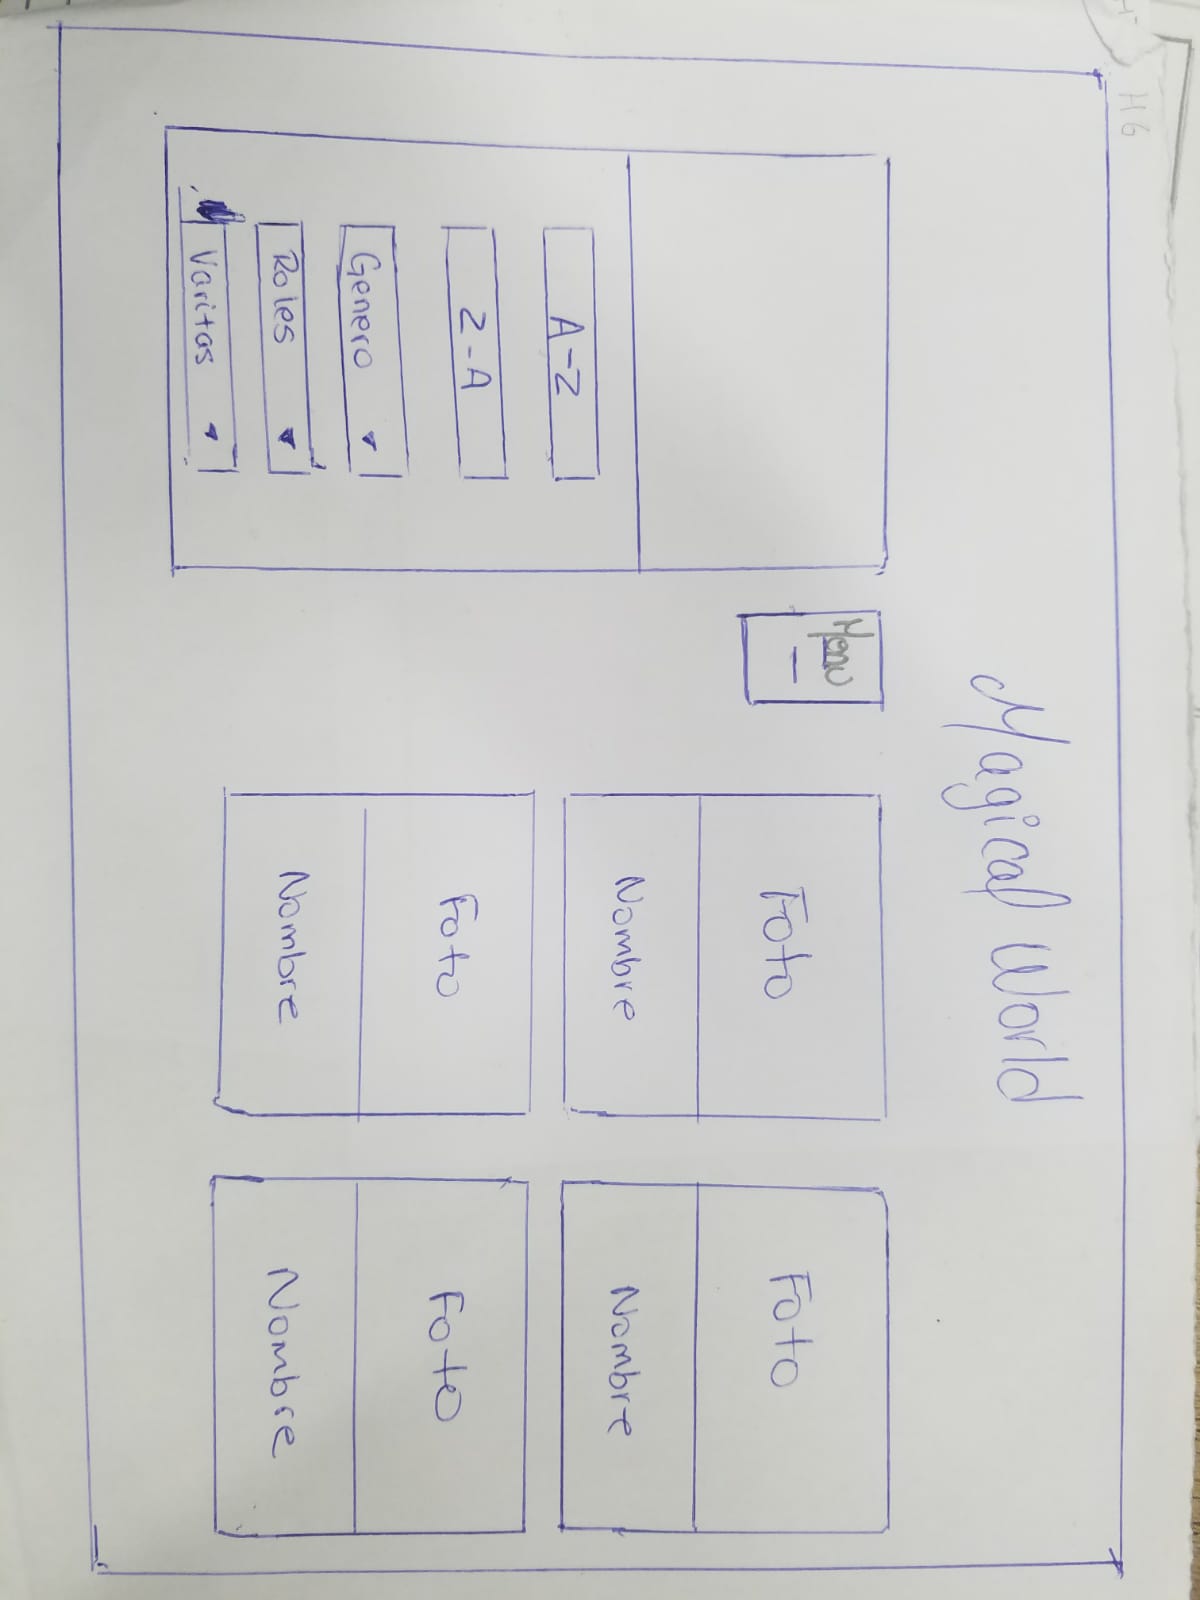 H6
Magical World
Menu
A-Z
Z-A
Genero
Roles
Varitas
Foto
Nombre
Foto
Nombre
Foto
Nombre
Foto
Nombre